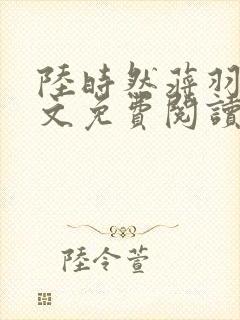 陸時然蒋羽
文免費閱讀
陸令萱